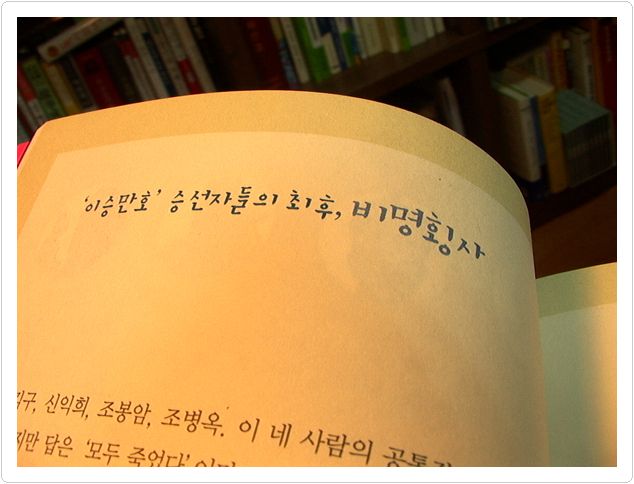 '이승만호' 승선자들의 최후, 비명횡사
신익희, 조봉암, 조병옥. 이 네 사람의
답은 '모두 죽었다'